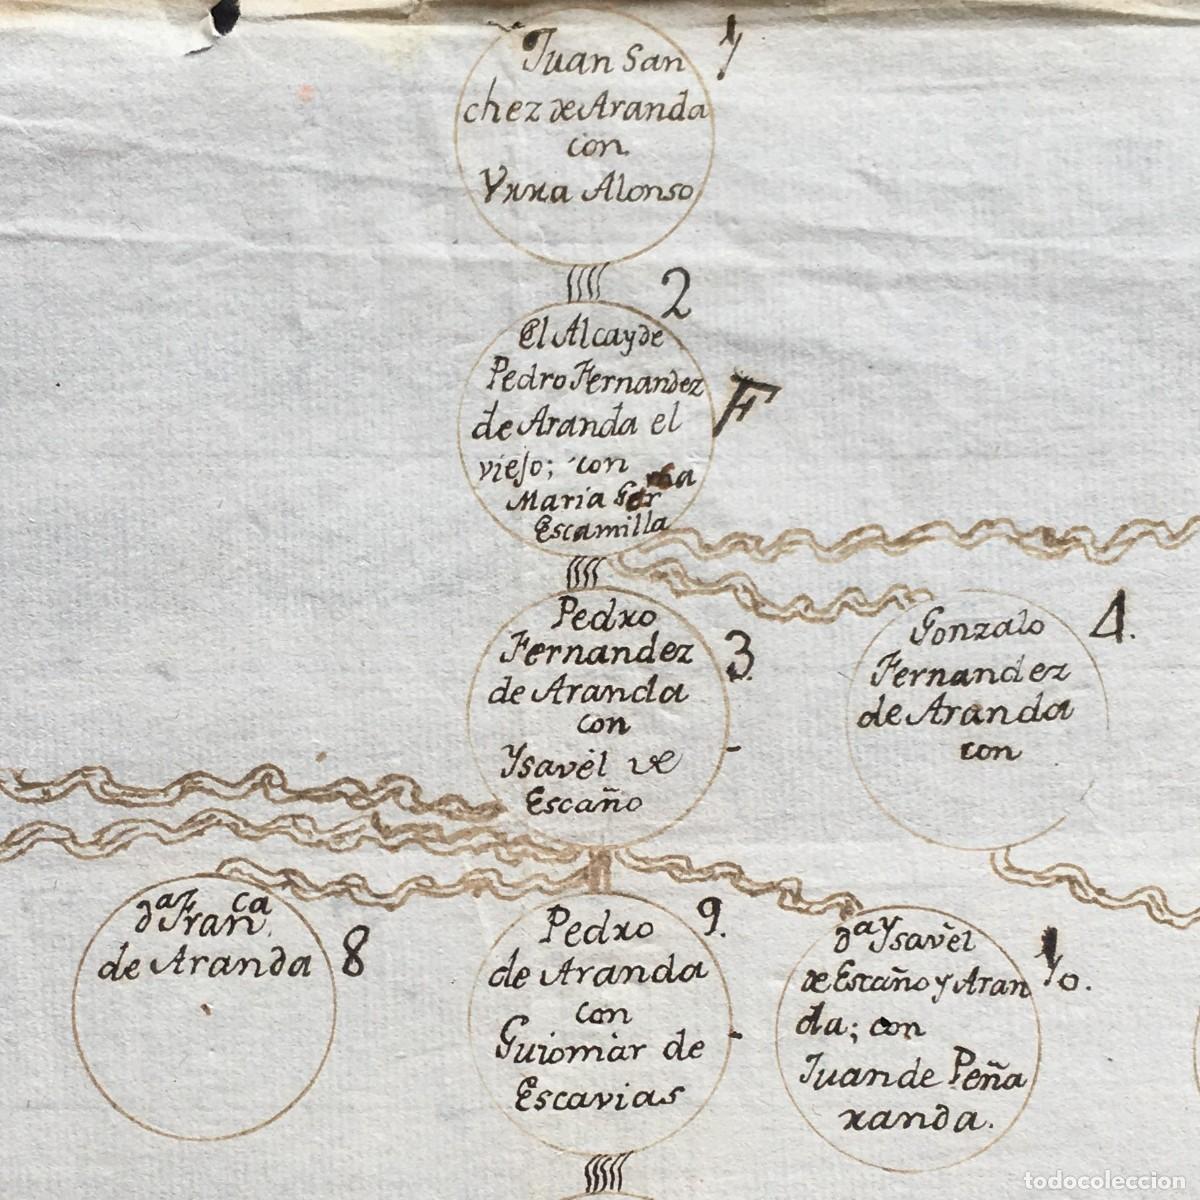 Juan San
chez de Aranda
con
Yxxa Alonso
1
2
El Alcayde
Pedro Fernandez
de Aranda el
viejo; con
Maria Gar
Escamilla
F
Pedro
Fernandez
de Aranda
con
Ysavel de
Escaño
3.
Gonzalo
Fernandez
de Aranda
con
4.
dª Franca
de Aranda
8
Pedro
de Aranda
con
Guiomar de
Escavias
9.
dª Ysavel
de Escaño y Aran
da; con
Juan de Peña
randa.
10.
todocoleccion